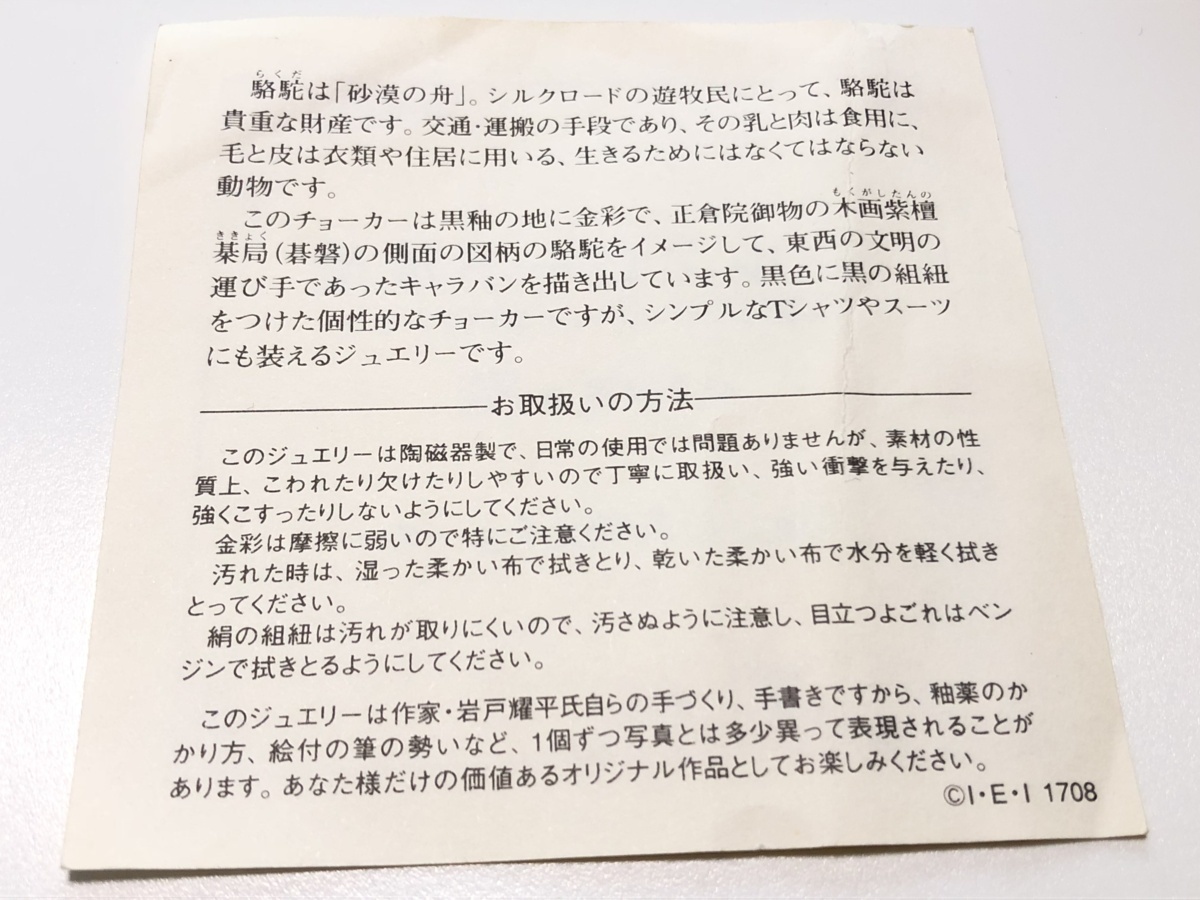 駱駝は「砂漠の舟」。シルクロードの遊牧民にとって、駱駝は
貴重な財産です。交通・運搬の手段であり、その乳と肉は食用に、
毛と皮は衣類や住居に用いる、生きるためにはなくてはならない
動物です。
このチョーカーは黒釉の地に金彩で、正倉院御物の木画紫檀
棊局(碁磐)の側面の図柄の駱駝をイメージして、東西の文明の
運び手であったキャラバンを描き出しています。黒色に黒の組紐
をつけた個性的なチョーカーですが、シンプルなTシャツやスーツ
にも装えるジュエリーです。
お取扱いの方法
このジュエリーは陶磁器製で、日常の使用では問題ありませんが、素材の性
質上、こわれたり欠けたりしやすいので丁寧に取扱い、強い衝撃を与えたり、
強くこすったりしないようにしてください。
金彩は摩擦に弱いので特にご注意ください。
汚れた時は、湿った柔かい布で拭きとり、乾いた柔かい布で水分を軽く拭き
とってください。
絹の組紐は汚れが取りにくいので、汚さぬように注意し、目立つよごれはベン
ジンで拭きとるようにしてください。
このジュエリーは作家・岩戸耀平氏自らの手づくり、手書きですから、釉薬のか
かり方、絵付の筆の勢いなど、1個ずつ写真とは多少異って表現されることが
あります。あなた様だけの価値あるオリジナル作品としてお楽しみください。
©I・E・I 1708